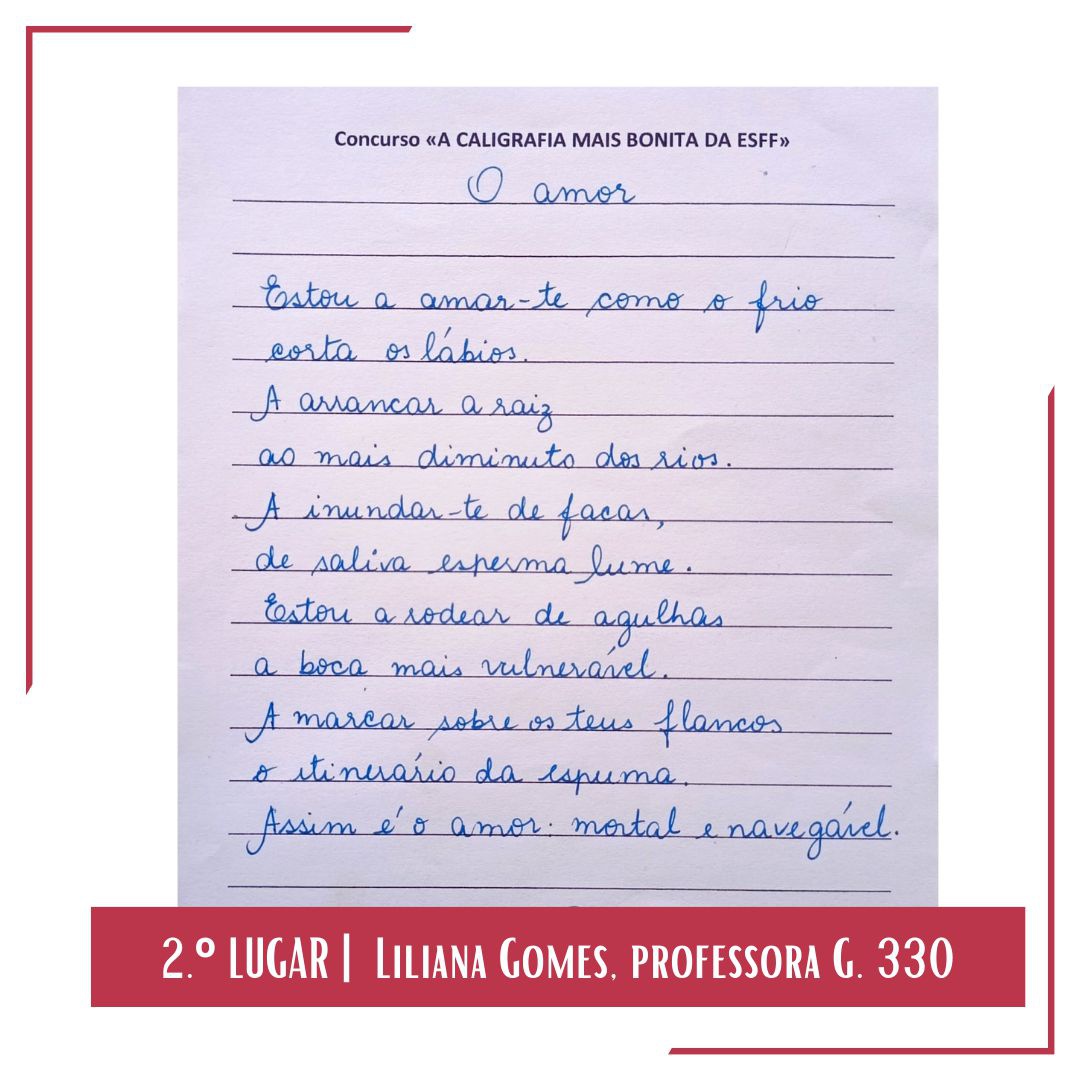 Concurso «A CALIGRAFIA MAIS BONITA DA ESFF»
O amor
Estou a amar-te como o frio
corta os lábios.
A arrancar a raiz
ao mais diminuto dos rios.
A inundar-te de facas,
de saliva esperma lume.
Estou a rodear de agulhas
a boca mais vulnerável.
A marcar sobre os teus flancos
o itinerário da espuma.
Assim é o amor: mortal e navegável.
2.º LUGAR | LILIANA GOMES, PROFESSORA G. 330